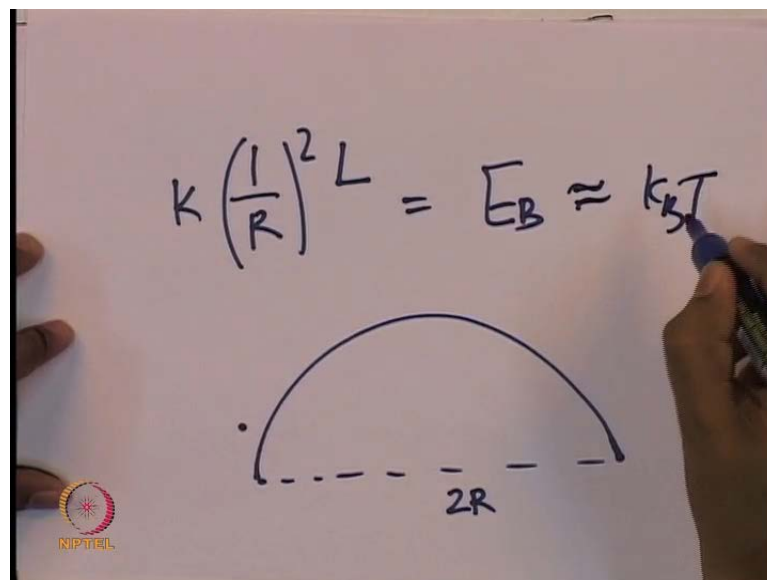 K (1/R)² L = E_B ≈ k_B T
2R
NPTEL